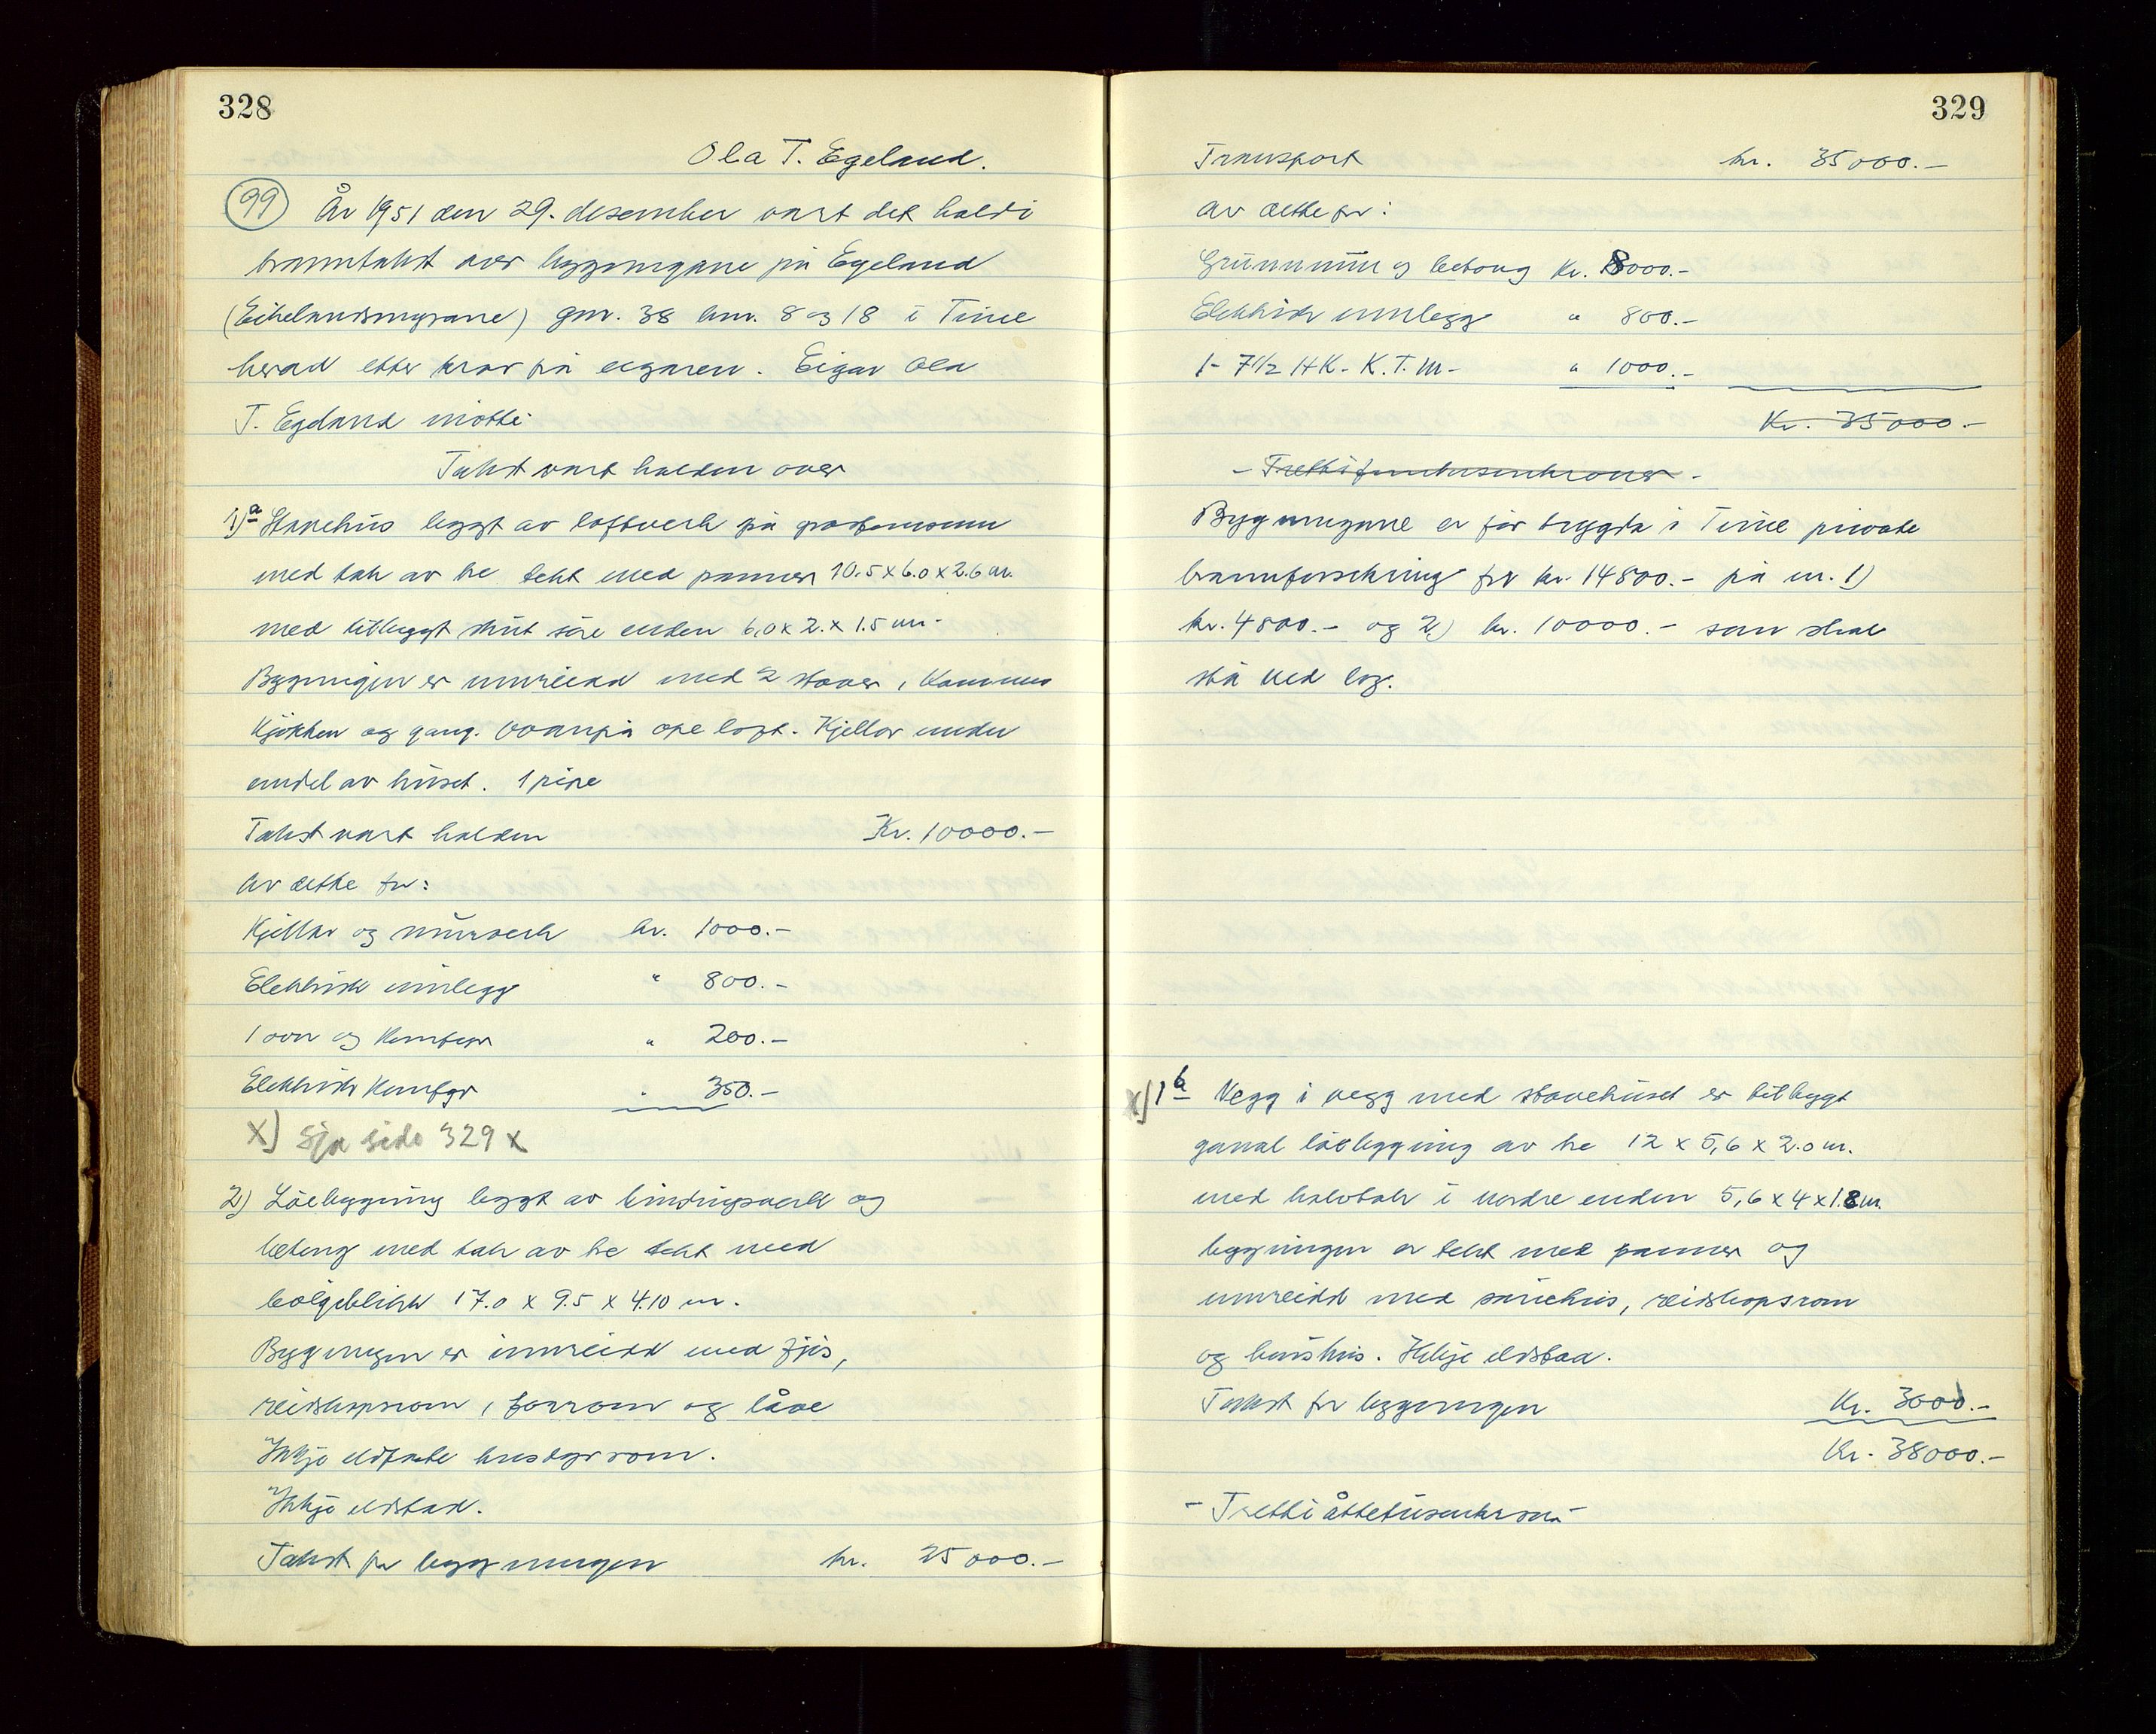 328
Ola T. Egeland.
99 År 1951 den 29. desember vart det haldi
branntakst over bygningane på Egeland
(Eikelandsmyrane) gnr. 38 bnr. 8 og 18 i Time
herad etter krav frå eigaren. Eigar Ola
T. Egeland møtte.
Takst vart halden over
1)a Stovehus bygt av loftverk på gråsteinsmur
med tak av tre tekt med panner 10.5 x 6.0 x 2.6 m.
med tilbygt skut søre enden 6.0 x 2. x 1.5 m.
Bygningen er innreidd med 2 stover, kammers
kjøkken og gang. Ovanpå ope loft. Kjellar under
endel av huset. 1 pipe
Takst vart halden Kr. 10000.-
Av dette for:
Kjellar og murverk kr. 1000.-
Elektrisk innlegg " 800.-
1 ovn og komfyr " 200.-
Elektrisk Komfyr " 350.-
X) Sjå side 329 x
2) Løebygning bygt av bindingsverk og
betong med tak av tre tekt med
bølgeblikk 17.0 x 9.5 x 4.10 m.
Bygningen er innreidd med fjøs,
reidskapsrom, forrom og låve
Ikkje eldfaste husdyrrom.
Ikkje eldstad.
Takst for bygningen kr. 25000.-
329
Transport kr. 35000.-
av dette for:
Grunnmur og betong Kr. 8000.-
Elektrisk innlegg " 800.-
1- 7 1/2 HK. K.T.M- " 1000.-
Kr. 35000.-
- Trettifemtusenkroner -
Bygningane er før trygda i Time private
brannforsikring for kr. 14800.- på nr. 1)
kr. 4800.- og 2) kr. 10000.- som skal
stå ved lag.
x) 1b Vegg i vegg med stovehuset er tilbygt
gamal løebygning av tre 12 x 5,6 x 2.0 m.
med halvtak i nordre enden 5,6 x 4 x 1.8 m.
bygningen er tekt med panner og
innreidd med sauehus, reidskapsrom
og hønshus. Ikkje eldstad.
Takst for bygningen Kr. 3000.-
Kr. 38000.-
- Trettiåttetusenkroner -